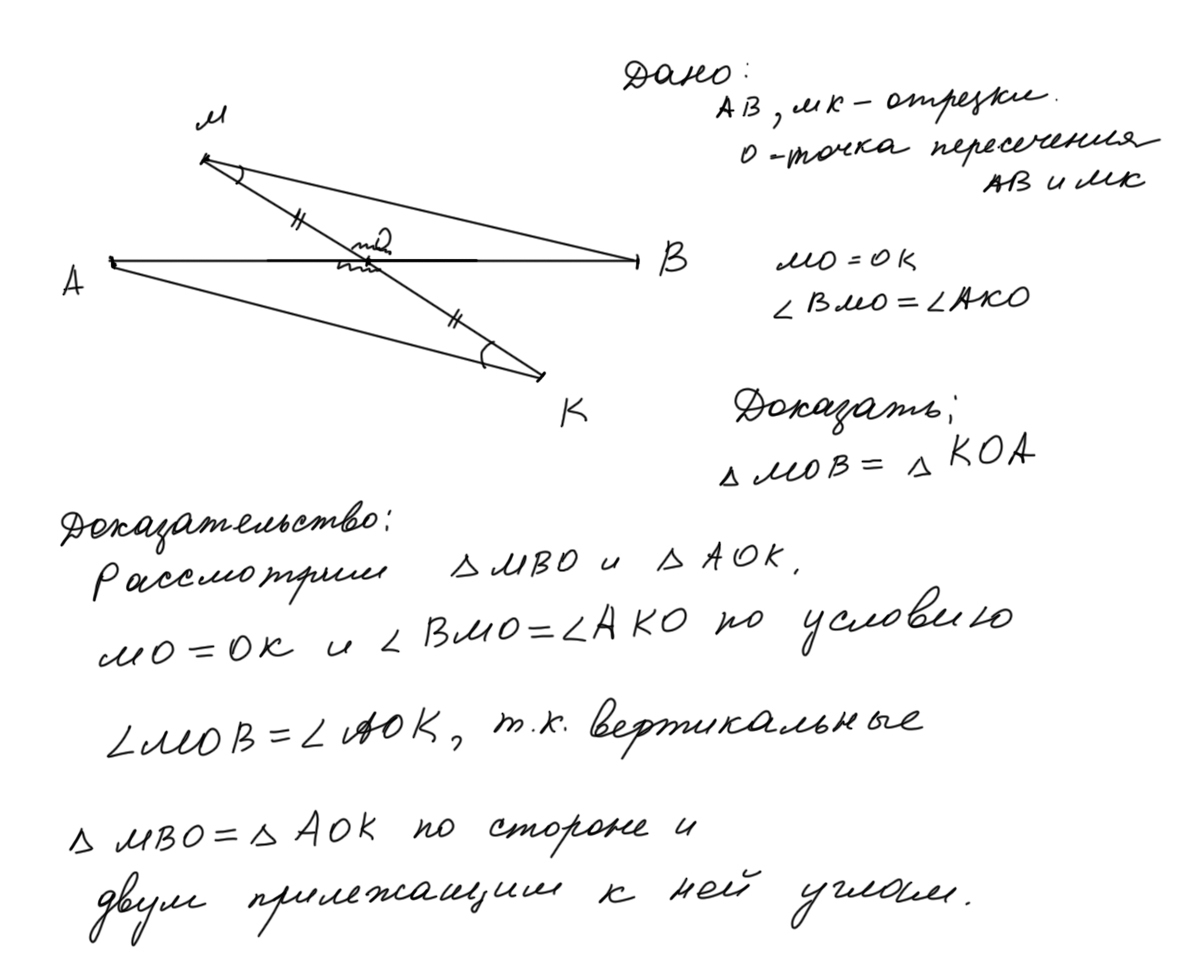 M
O
A
B
K
Дано:
AB, MK – отрезки.
O – точка пересечения
AB и MK
MO = OK
∠BMO = ∠AKO
Доказать:
△MOB = △KOA
Доказательство:
Рассмотрим △MBO и △AOK.
MO = OK и ∠BMO = ∠AKO по условию
∠MOB = ∠AOK, т.к. вертикальные
△MBO = △AOK по стороне и
двум прилежащим к ней углам.